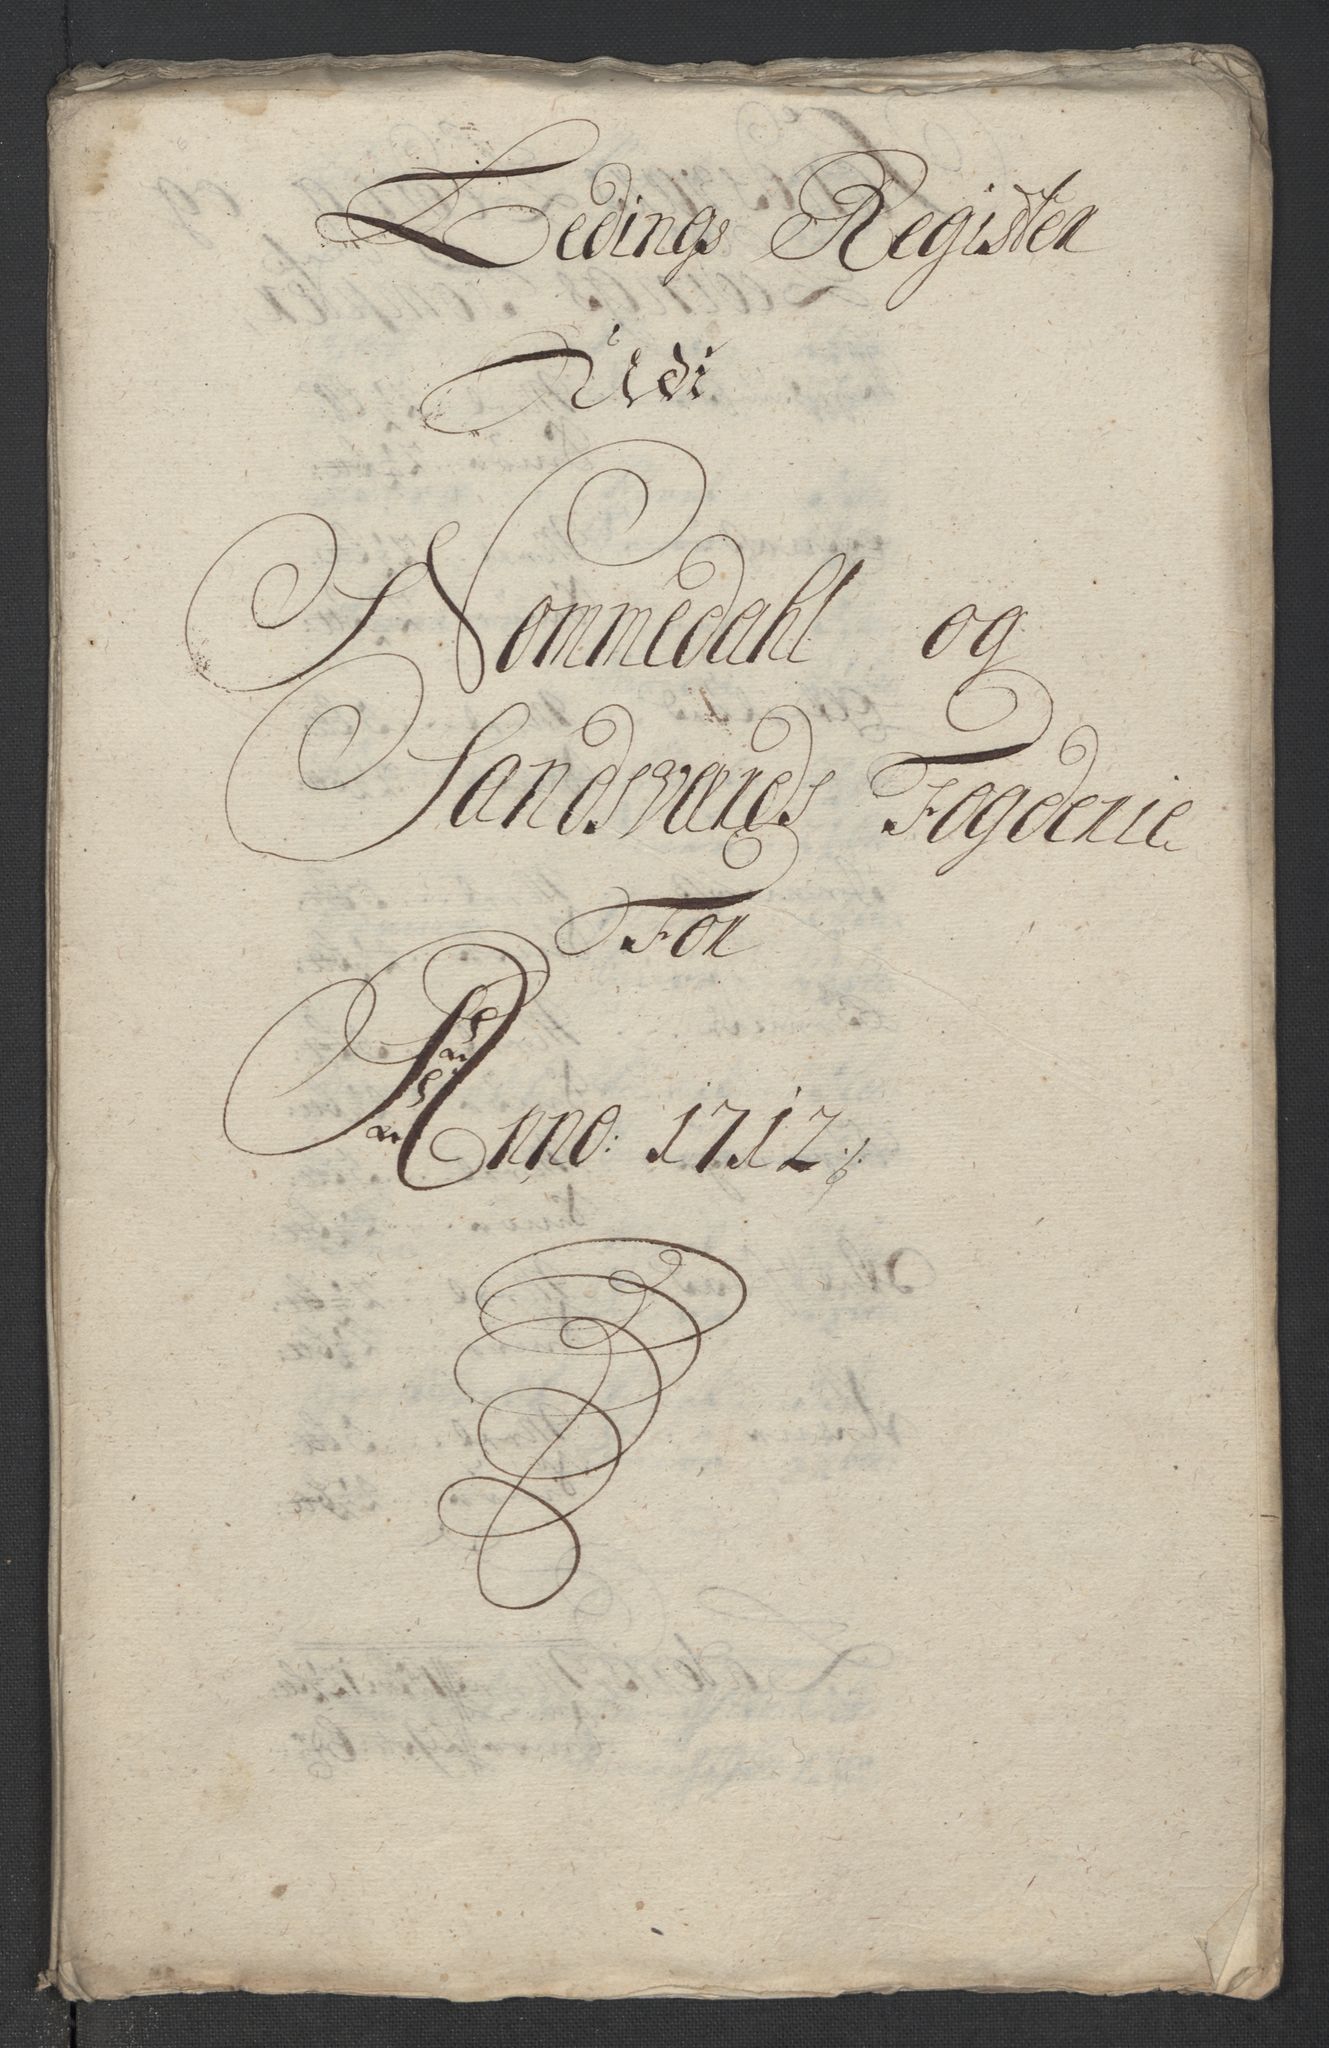 Ledings Register
Udi
Nommedahl og
Sandsværds Fogderie
For
Anno: 1712